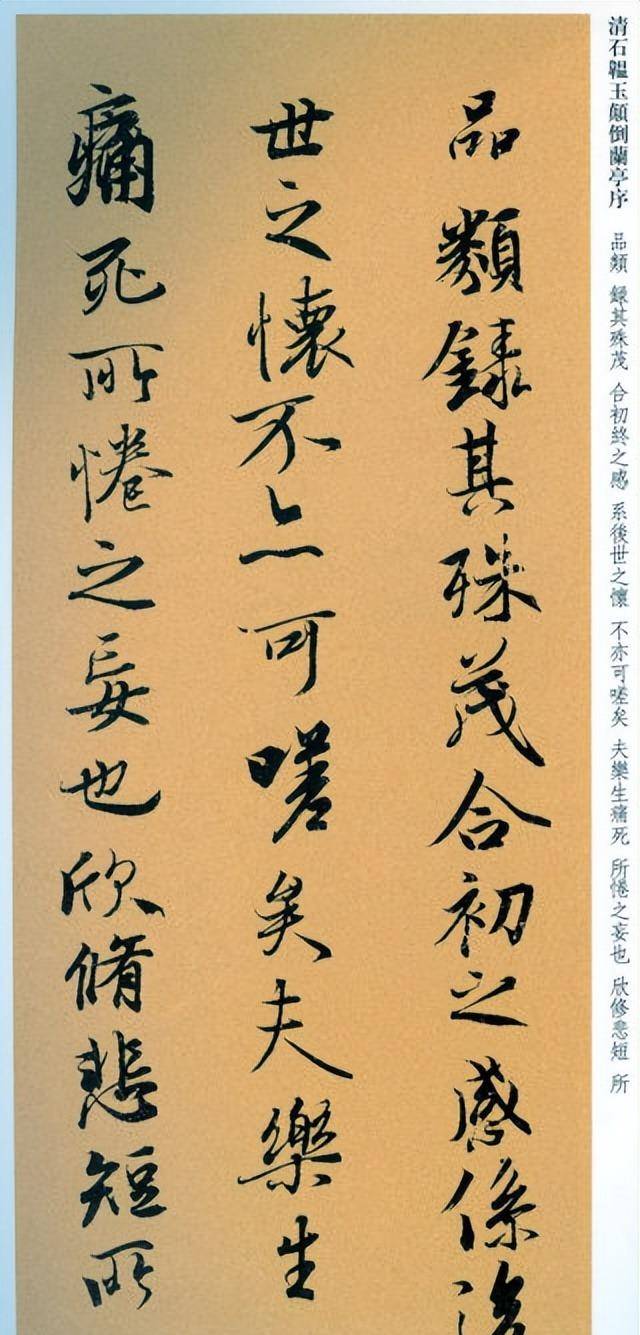 清石韞玉顛倒蘭亭序 品類 録其殊茂 合初終之感 系後世之懷 不亦可嗟矣 夫樂生痛死 所惓之妄也 欣修悲短 所
品類録其殊茂合初之感係後
世之懷不亦可嗟矣夫樂生
痛死所惓之妄也欣脩悲短所